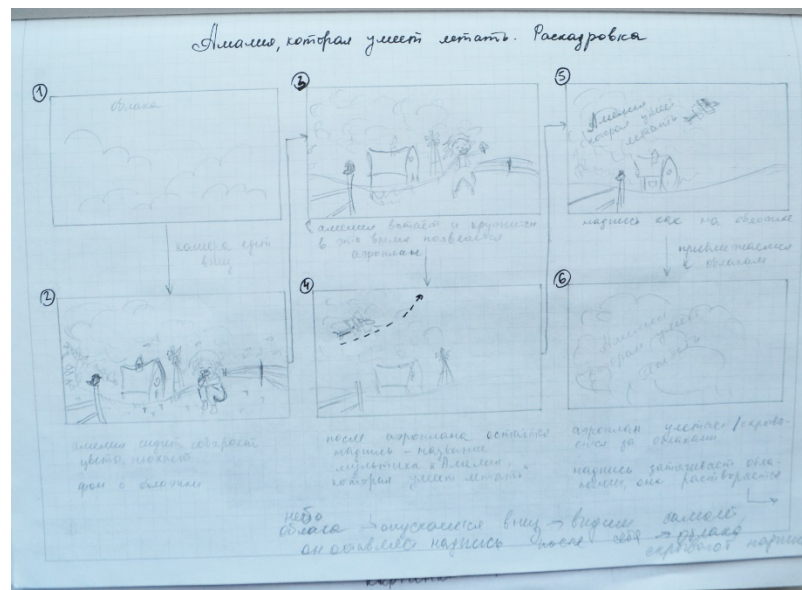 Амалия, которая умеет летать. Раскадровка
1
облака
камера едет
вниз
2
амелия сидит собирает
цветы, нюхает
фон с обложки
3
амелия встает и кружится
в это время появляется
аэроплан
4
после аэроплана остается
надпись - название
мультика "Амелия,
которая умеет летать"
5
Амелия
которая умеет
летать
надпись как на обложке
приближаемся
к облакам
6
Амелия
которая умеет
летать
аэроплан улетает/скрыва-
ется за облаками
надпись затягивает обла-
ками, она растворяется
небо
облака → опускаемся вниз → видим самолет,
он оставляет надпись после себя → облака
скрывают надпись